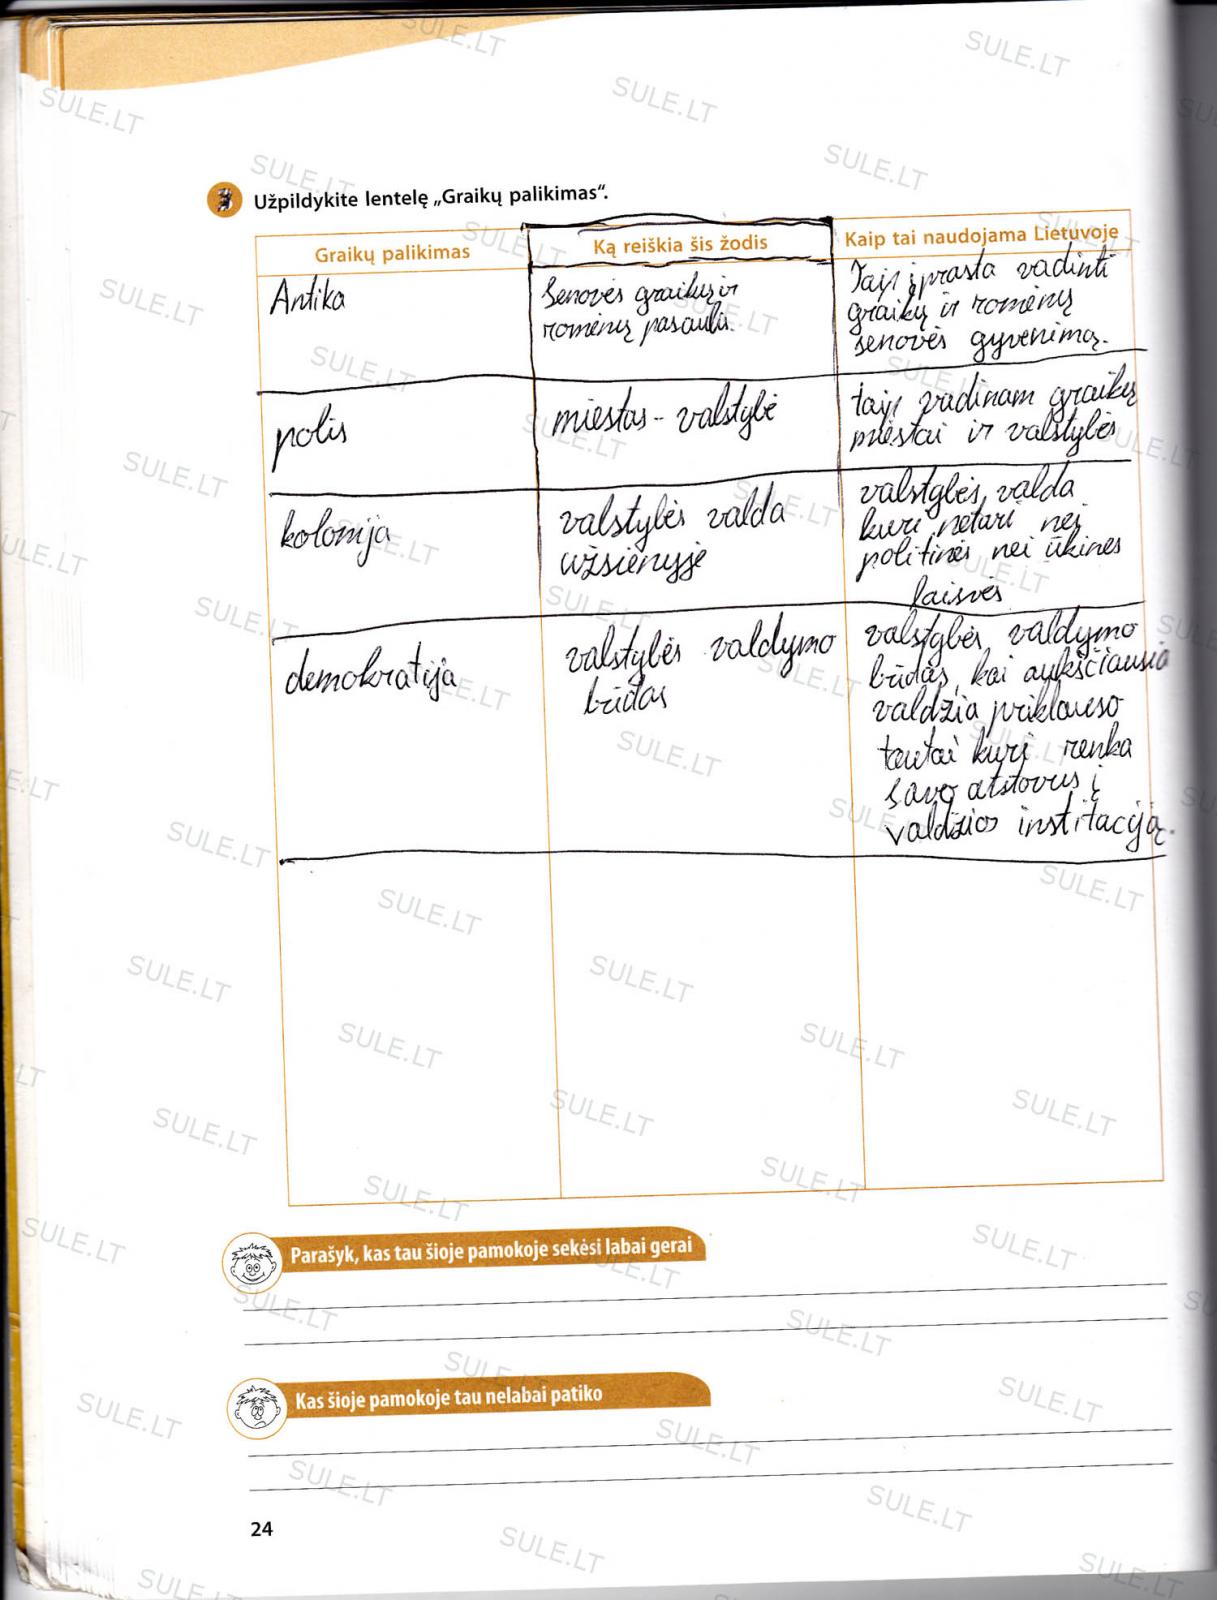 3 Užpildykite lentelę „Graikų palikimas“.
Graikų palikimas
Ką reiškia šis žodis
Kaip tai naudojama Lietuvoje
Antika
Senovės graikų ir
romėnų pasaulis.
Taip įprasta vadinti
graikų ir romėnų
senovės gyvenimą.
polis
miestas - valstybė
taip vadinam graikų
miestai ir valstybės
kolonija
valstybės valda
užsienyje
valstybės, valda
kuri neturi nei
politinės nei ūkinės
laisvės
demokratija
valstybės valdymo
būdas
valstybės, valdymo
būdas, kai aukščiausia
valdžia priklauso
tautai kuri renka
savo atstovus į
valdžios institaciją.
Parašyk, kas tau šioje pamokoje sekėsi labai gerai
Kas šioje pamokoje tau nelabai patiko
24
SULE.LT